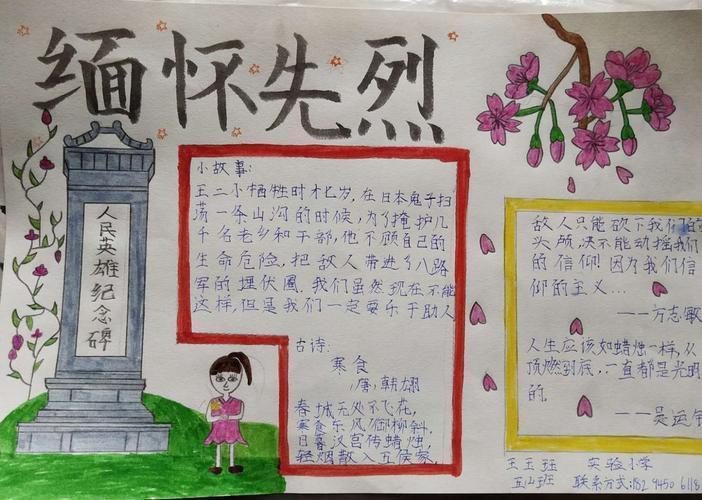 缅怀先烈
人民英雄纪念碑
小故事:
王二小牺牲时才七岁,在日本鬼子扫
荡一条山沟的时候,为了掩护几
千名老乡和干部,他不顾自己的
生命危险,把敌人带进了八路
军的埋伏圈。我们虽然现在不能
这样,但是我们一定要乐于助人
古诗:
寒食
(唐)韩翃
春城无处不飞花,
寒食东风御柳斜。
日暮汉宫传蜡烛,
轻烟散入五侯家。
敌人只能砍下我们的
头颅,决不能动摇我们
的信仰!因为我们信
仰的主义...
——方志敏
人生应该如蜡烛一样,从
顶燃到底,一直都是光明
的。
——吴运
实验小学
联系方式: